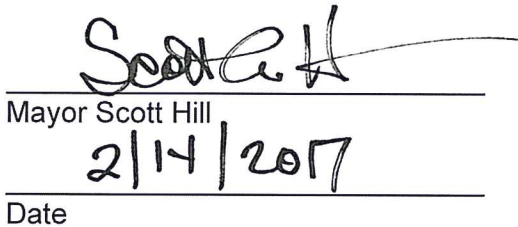 Scott A. H
Mayor Scott Hill
2/14/2017
Date